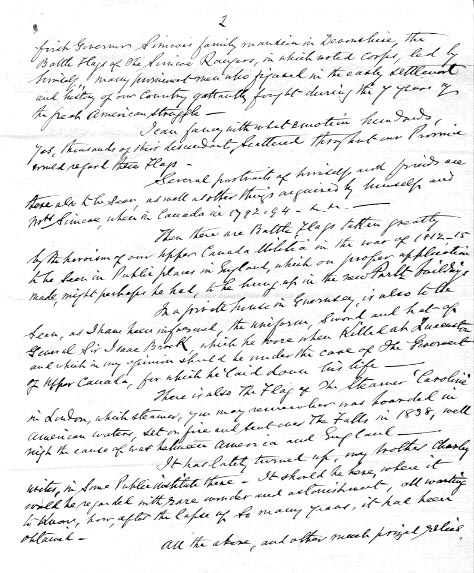 2
first Governor Simcoe's family mansion in Devonshire, the
Battle Flags of the Simcoe Rangers, in which noted corps, led by
himself, many prominent men who figured in the early settlement
and history of our Country gallantly fought during the 7 years of
the great American Struggle —
I can fancy with what emotion hundreds,
yes, thousands of their descendants, scattered throughout our Province
would regard these Flags —
Several portraits of himself and friends are
there also to be seen, as well as other things acquired by himself and
Mrs Simcoe, when in Canada in 1792-94
Then there are Battle Flags taken greatly
by the heroism of our Upper Canada Militia in the war of 1812-15
to be seen in Public places in England, which on proper application
made, might perhaps be had, to be hung up in the new Parlt buildings
In a private house in Guernsey, is also to be
seen, as I have been informed, the uniform, sword and hat of
General Sir Isaac Brock, which he wore when killed at Queenston
and which in my opinion should be under the care of the Government
of Upper Canada, for which he laid down his life —
There is also the Flag of the Steamer 'Caroline'
in London, which steamer, you may remember was boarded in
American waters, set on fire and sent over the Falls, in 1838, well
nigh the cause of war between America and England —
It has lately turned up, my brother Charley
writes, in some Public institute there — It should be here, where it
would be regarded with rare wonder and astonishment, all wanting
to know, how, after the lapse of so many years, it had been
obtained —
All the above, and other much prized relics,